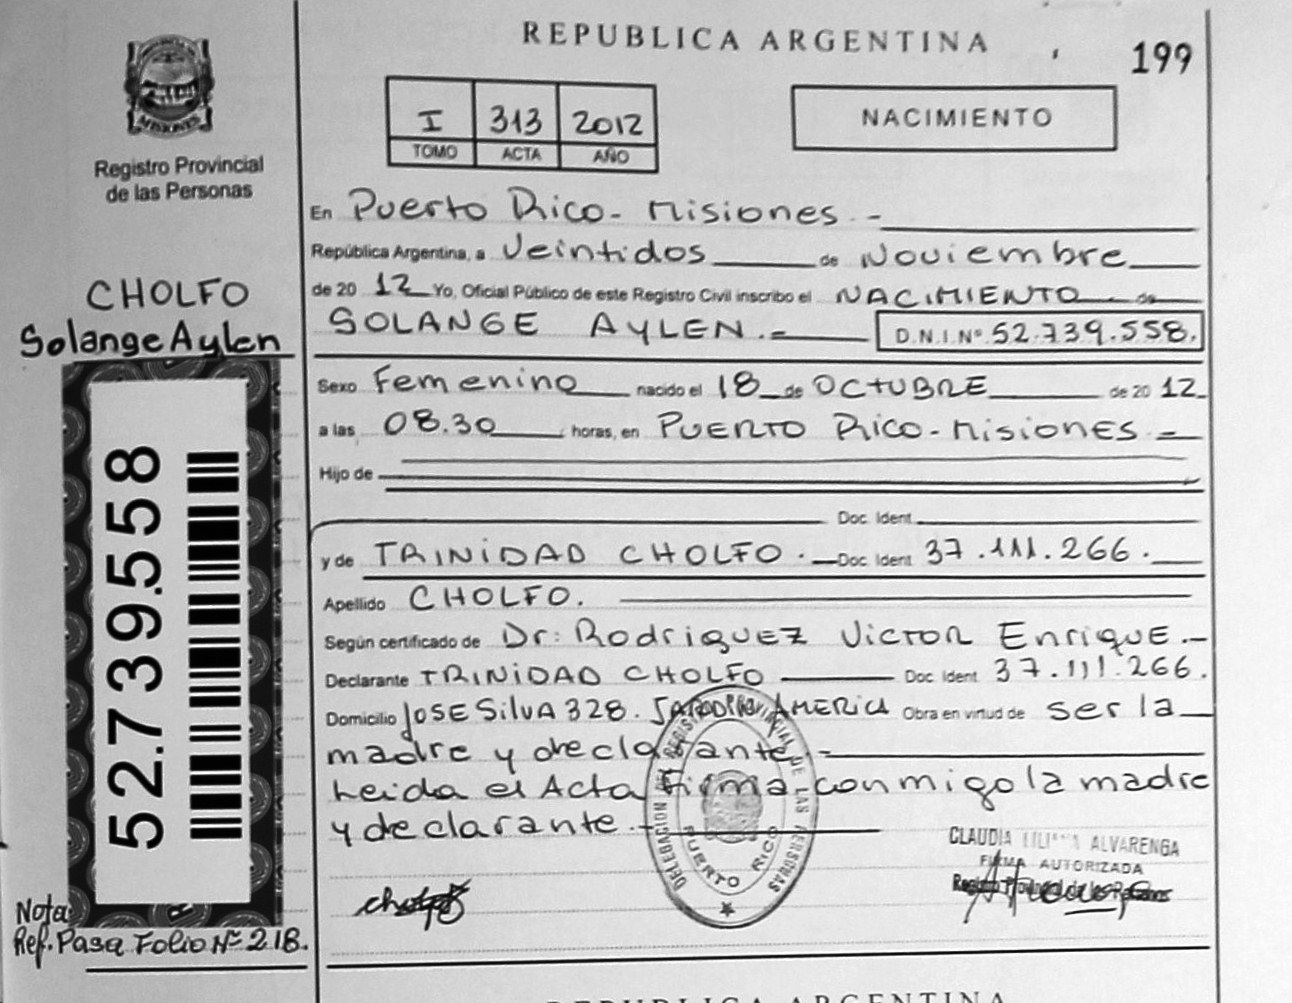 REPUBLICA ARGENTINA
199
MISIONES
Registro Provincial
de las Personas
I 313 2012
TOMO ACTA AÑO
NACIMIENTO
En Puerto Rico - Misiones -
República Argentina, a Veintidos de Noviembre
de 20 12 Yo, Oficial Público de este Registro Civil inscribo el NACIMIENTO de
SOLANGE AYLEN.- D.N.I.Nº 52.739.558.
Sexo Femenino nacido el 18 de OCTUBRE de 20 12
a las 08.30 horas, en PUERTO RICO - MISIONES -
Hijo de
Doc. Ident
y de TRINIDAD CHOLFO. Doc. Ident 37.111.266.
Apellido CHOLFO.
Según certificado de Dr: Rodriguez Victor Enrique.-
Declarante TRINIDAD CHOLFO Doc. Ident 37.111.266.
Domicilio JOSE SilVA 328. AMERICA Obra en virtud de ser la
madre y declarante -
Leida el Acta Firma conmigo la madre
y declarante.-
CHOLFO
Solange Aylen
52.739.558
Nota:
Ref. Pasa Folio Nº 218.
DELEGACION REGISTRO PROVINCIAL DE LAS PERSONAS
PUERTO RICO
CLAUDIA ALVARENGA
FIRMA AUTORIZADA
Registro Provincial de las Personas
REPUBLICA ARGENTINA